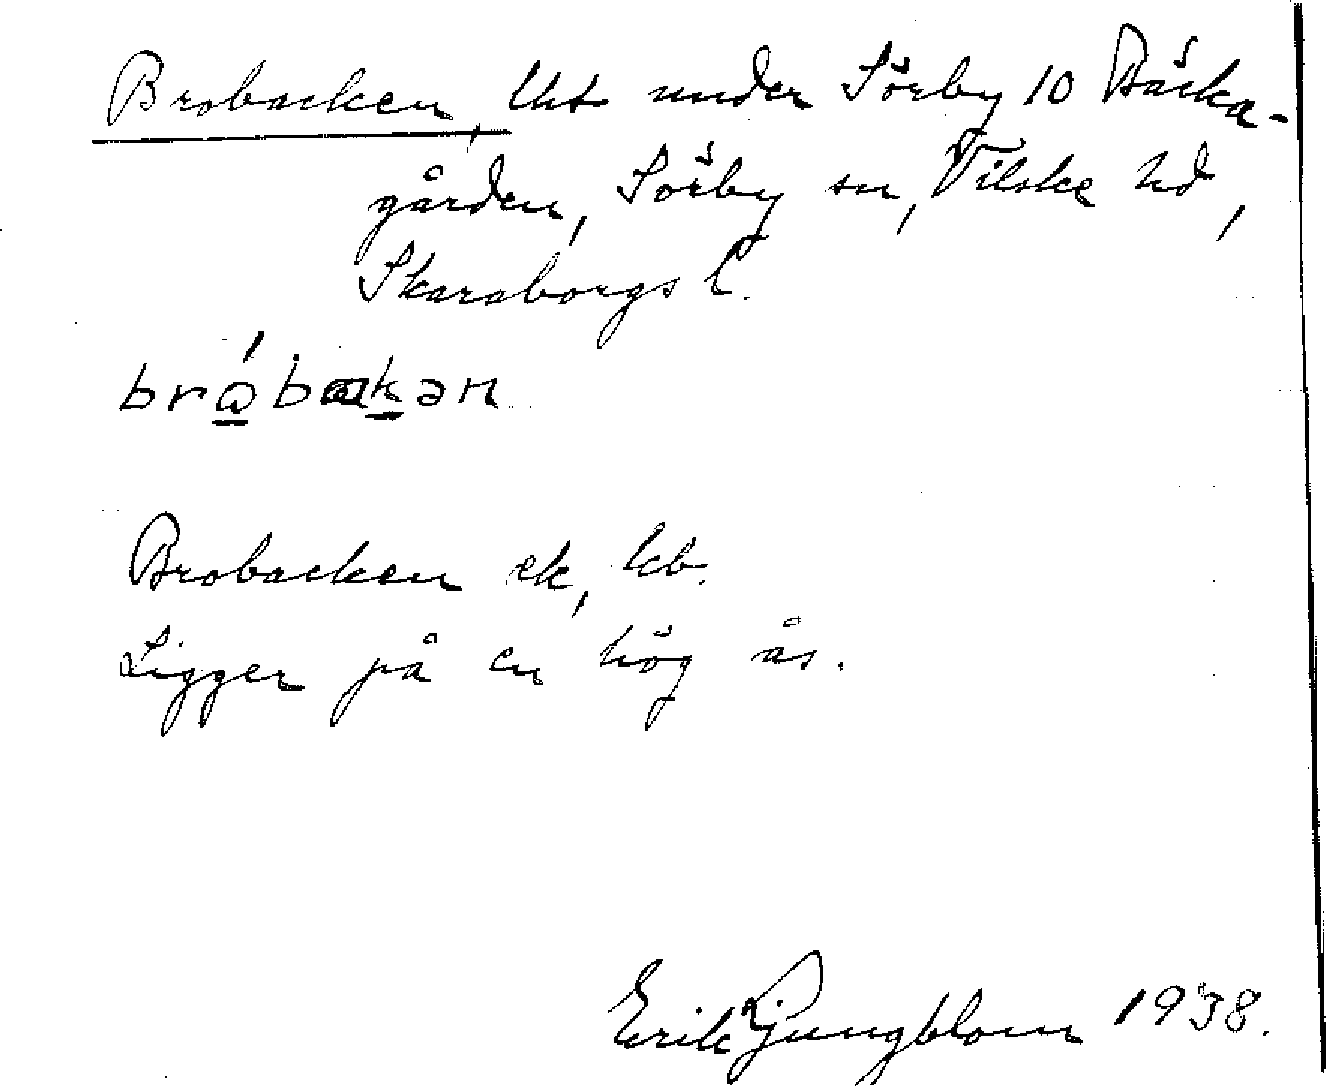 Brobacken, Uts under Sörby 10 Bäcka-
gården, Sörby sn, Vilske hd,
Skaraborgs l.
Brobacken ek, kb.
Ligger på en hög ås.
Erik Ljungblom 1938.